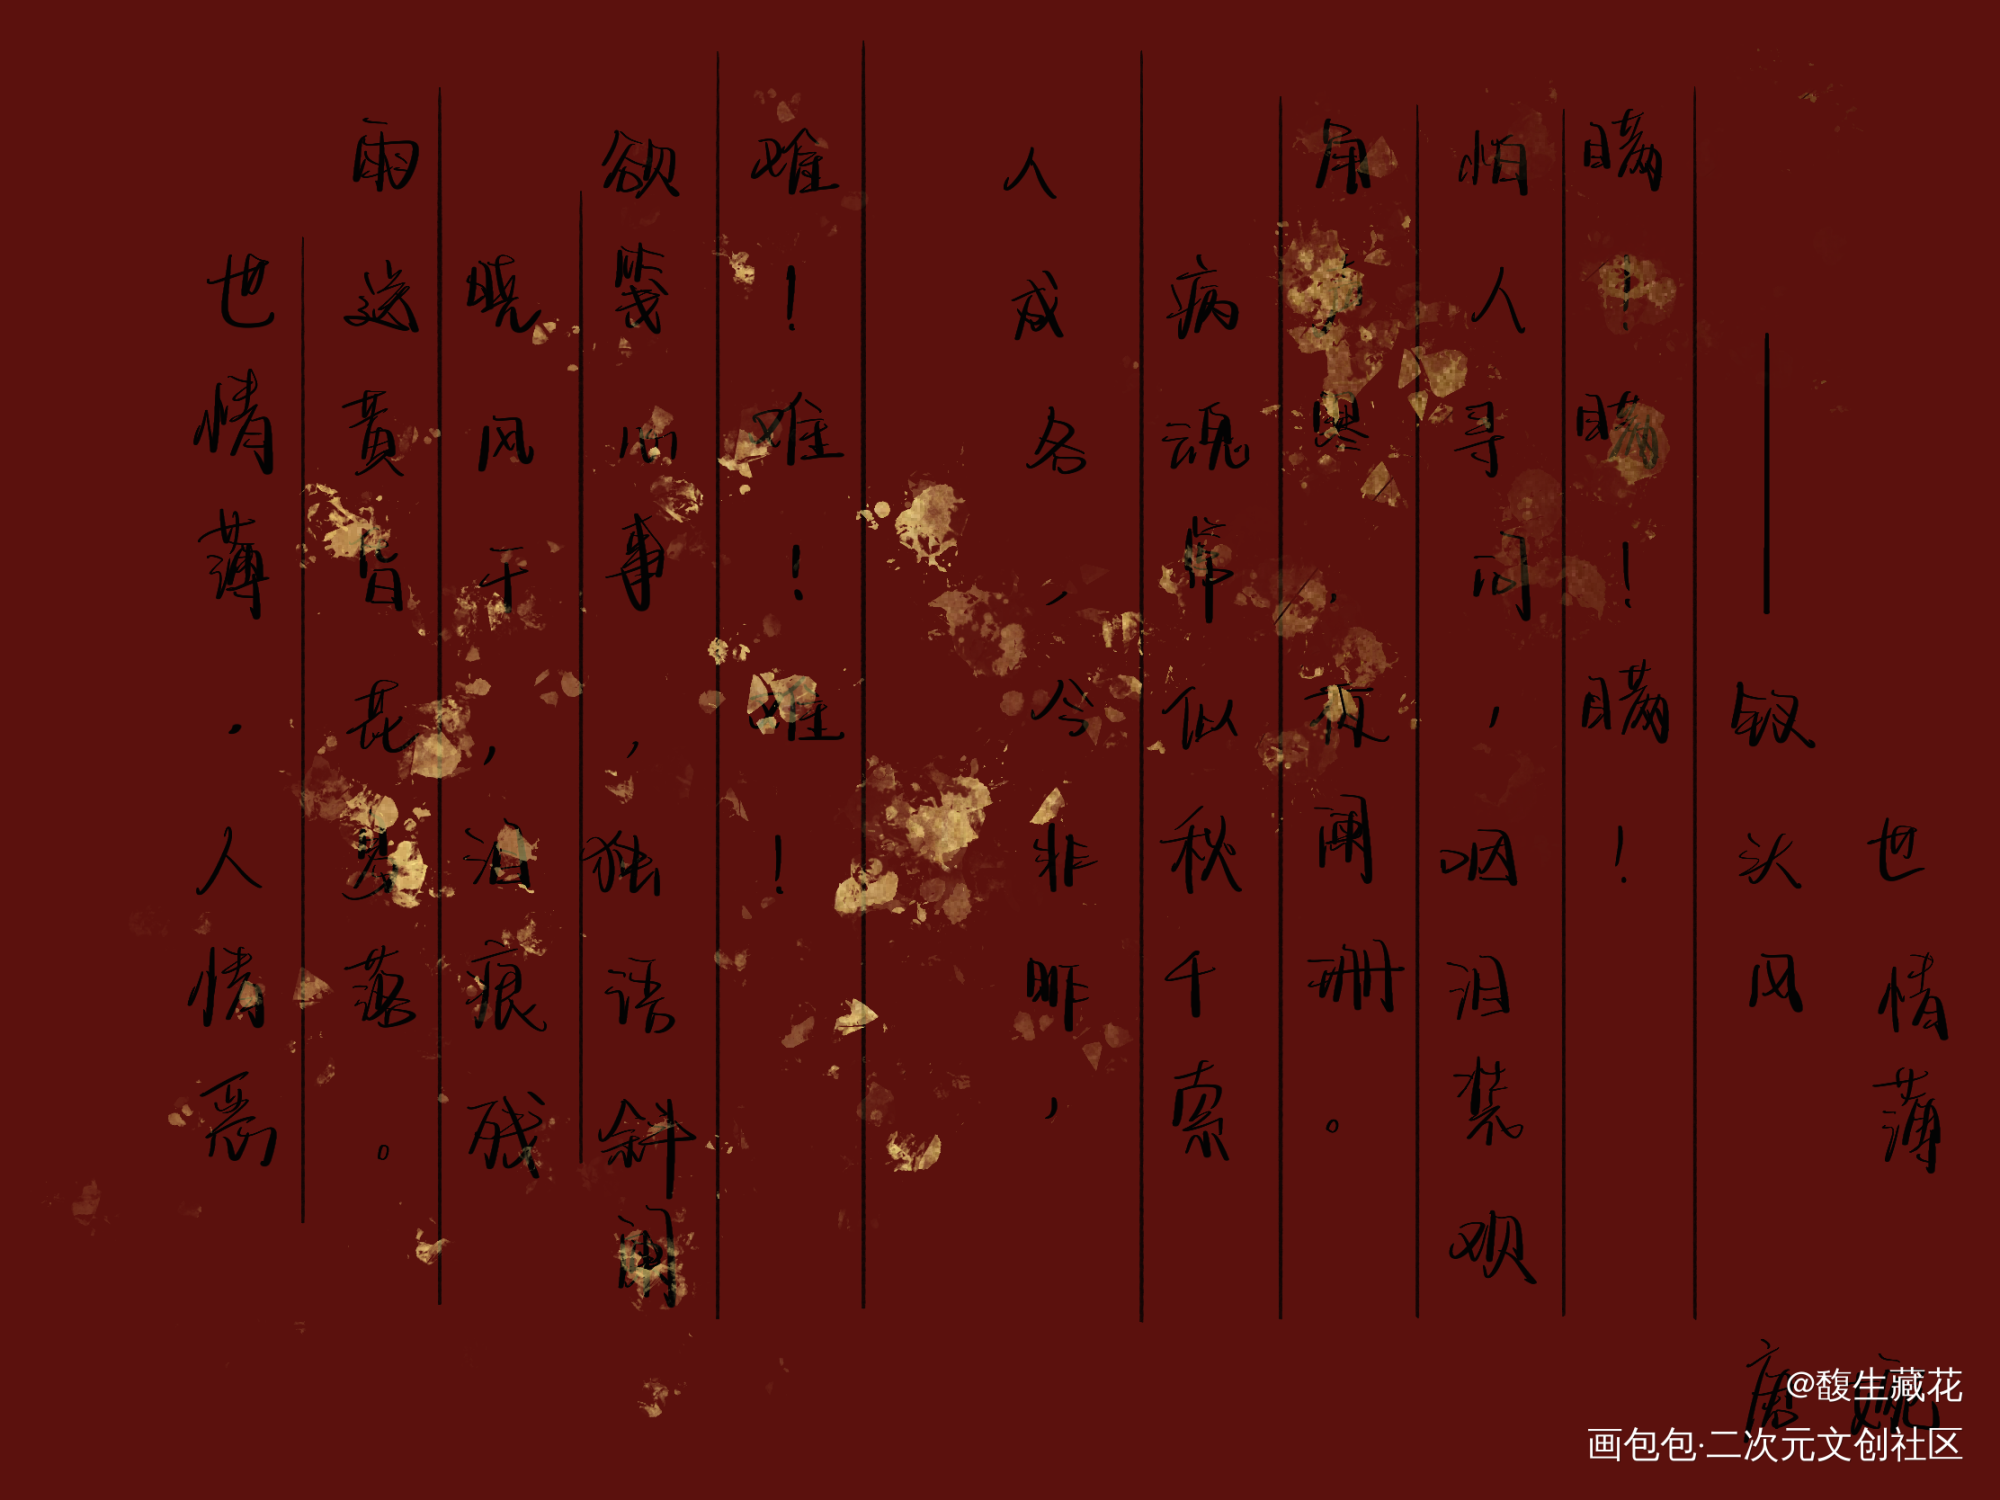 世情薄，人情恶
雨送黄昏花易落。
晓风干，泪痕残
欲笺心事，独语斜阑
难！难！难！
人成各，今非昨，
病魂常似秋千索
角声寒，夜阑珊。
怕人寻问，咽泪装欢
瞒！瞒！瞒！
——钗头风
世情薄
唐婉
@馥生藏花
画包包·二次元文创社区